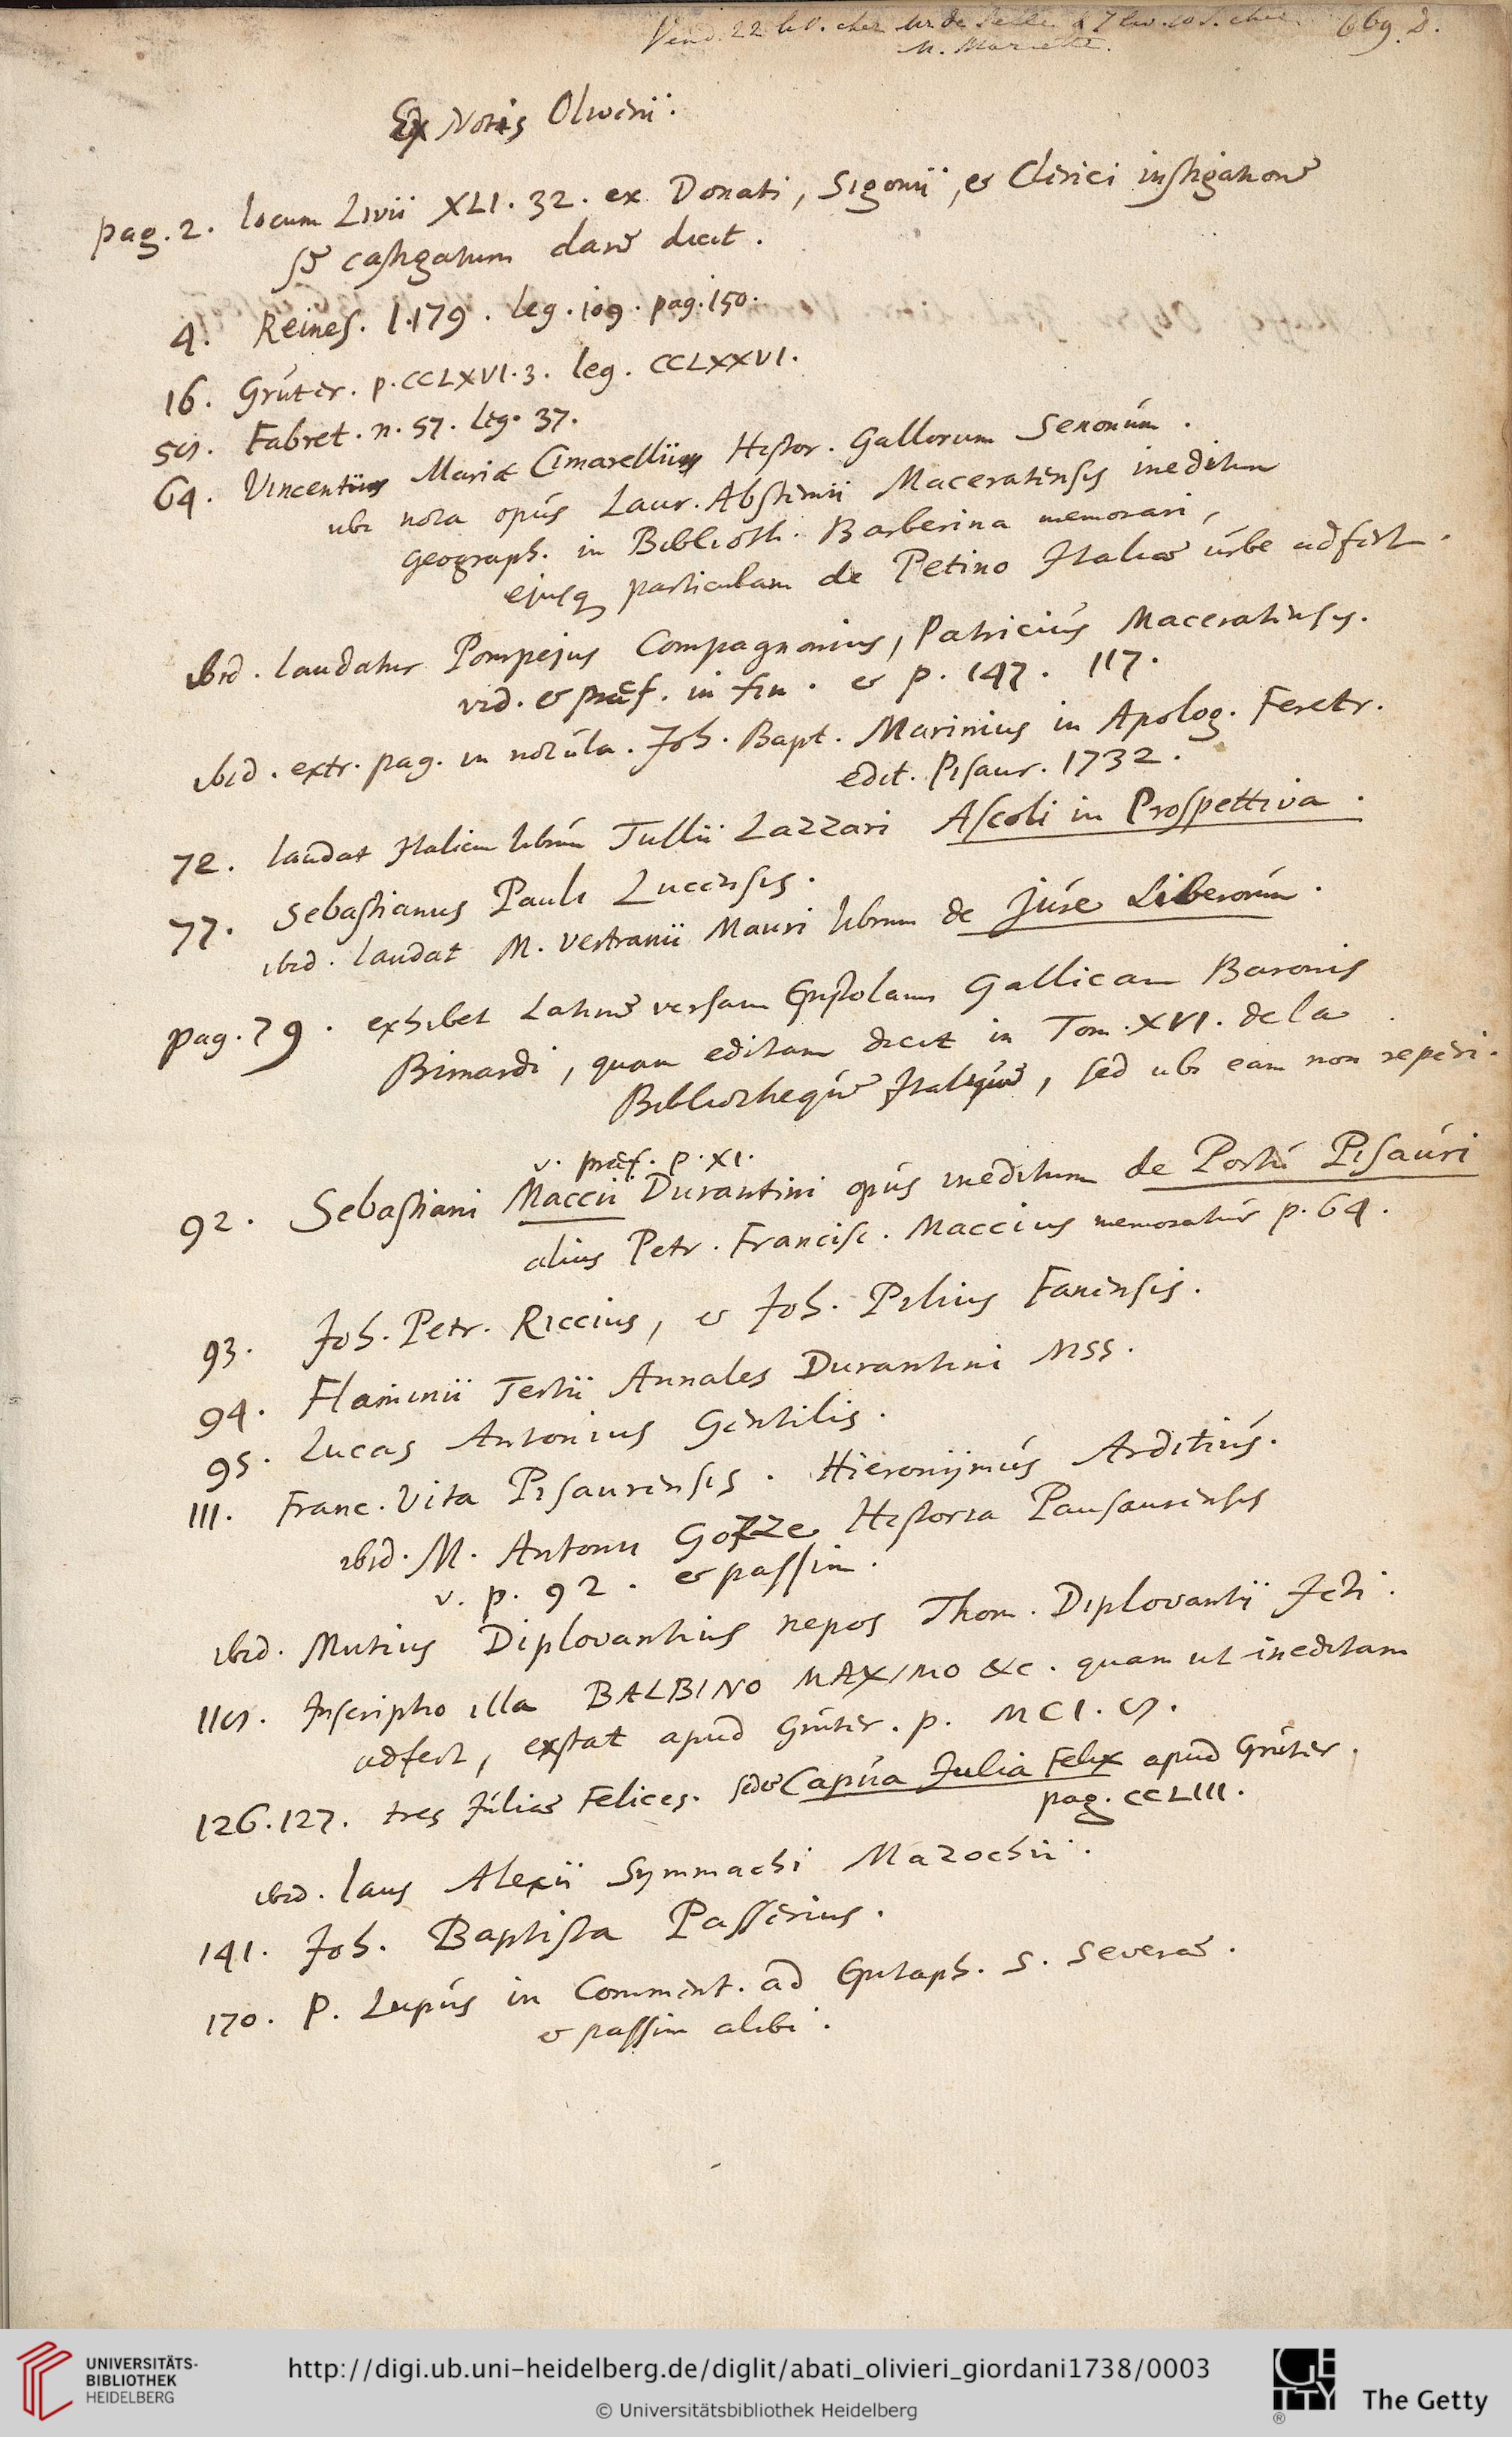 Vend. 22 liv. chez Mr. de Selle à 7 liv. 10 s. chez 669. D.
M. Mariette.
Ex Notis Oliverii.
pag. 2. locum Livii XLI. 32. ex Donati, Sigonii, & Clerici instigatione
se castigatum dare dicit.
4. Reines. l. 179. leg. 109. pag. 150.
16. Gruter. p. CCLXVI. 3. leg. CCLXXVI.
Fabret. n. 57. leg. 37.
64. Vincentius Maria Cimarellius Histor. Gallorum Senonum.
ubi nota opus Laur. Abstemii Maceratensis ineditum
geograph. in Biblioth. Barberina memorari,
ejusq particulam de Petino Italiae urbe adfert.
ibid. laudatur Pompejus Compagnonius, Patricius Maceratensis.
vid. & praef. in fin. & p. 147. 117.
ibid. extr. pag. in notula. Joh. Bapt. Marinius in Apolog. Feretr.
edit. Pisaur. 1732.
72. laudat Italicum librum Tullii Lazzari Ascoli in Prospettiva.
77. Sebastianus Pauli Lucensis.
ibid. laudat M. Vertranii Mauri librum de jure Liberorum.
pag. 79. exhibet Latine versam Epistolam Gallicam Baronis
Bimardi, quam editam dicit in Tom. XVI. de la
Bibliotheque Italique, sed ubi eam non reperi.
v. praef. p. XI.
92. Sebastiani Maccii Durantini opus ineditum de Portu Pisauri
alius Petr. Francisc. Maccius memoratur p. 64.
93. Joh. Petr. Riccius, & Joh. Pilius Fanensis.
94. Flaminii Tertii Annales Durantini MSS.
95. Lucas Antonius Gentilis.
111. Franc. Vita Pisaurensis. Hieronijmus Arditius.
ibid. M. Antonii Gozze Historia Pausaurensis
v. p. 92. & passim.
ibid. Mutius Diplovantius nepos Thom. Diplovantii Jcti.
Inscriptio illa BALBINO MAXIMO &c. quam ut ineditam
adfert, exstat apud Gruter. p. MCI.
126. 127. tres Juliae Felices. Capua Julia Felix apud Gruter.
pag. CCLIII.
ibid. laus Alexii Symmachi Mazochii.
141. Joh. Baptista Passerius.
170. P. Lupus in Comment. ad Epitaph. S. Severae.
& passim alibi.
UNIVERSITÄTS-
BIBLIOTHEK
HEIDELBERG
http://digi.ub.uni-heidelberg.de/diglit/abati_olivieri_giordani1738/0003
© Universitätsbibliothek Heidelberg
GETTY
The Getty